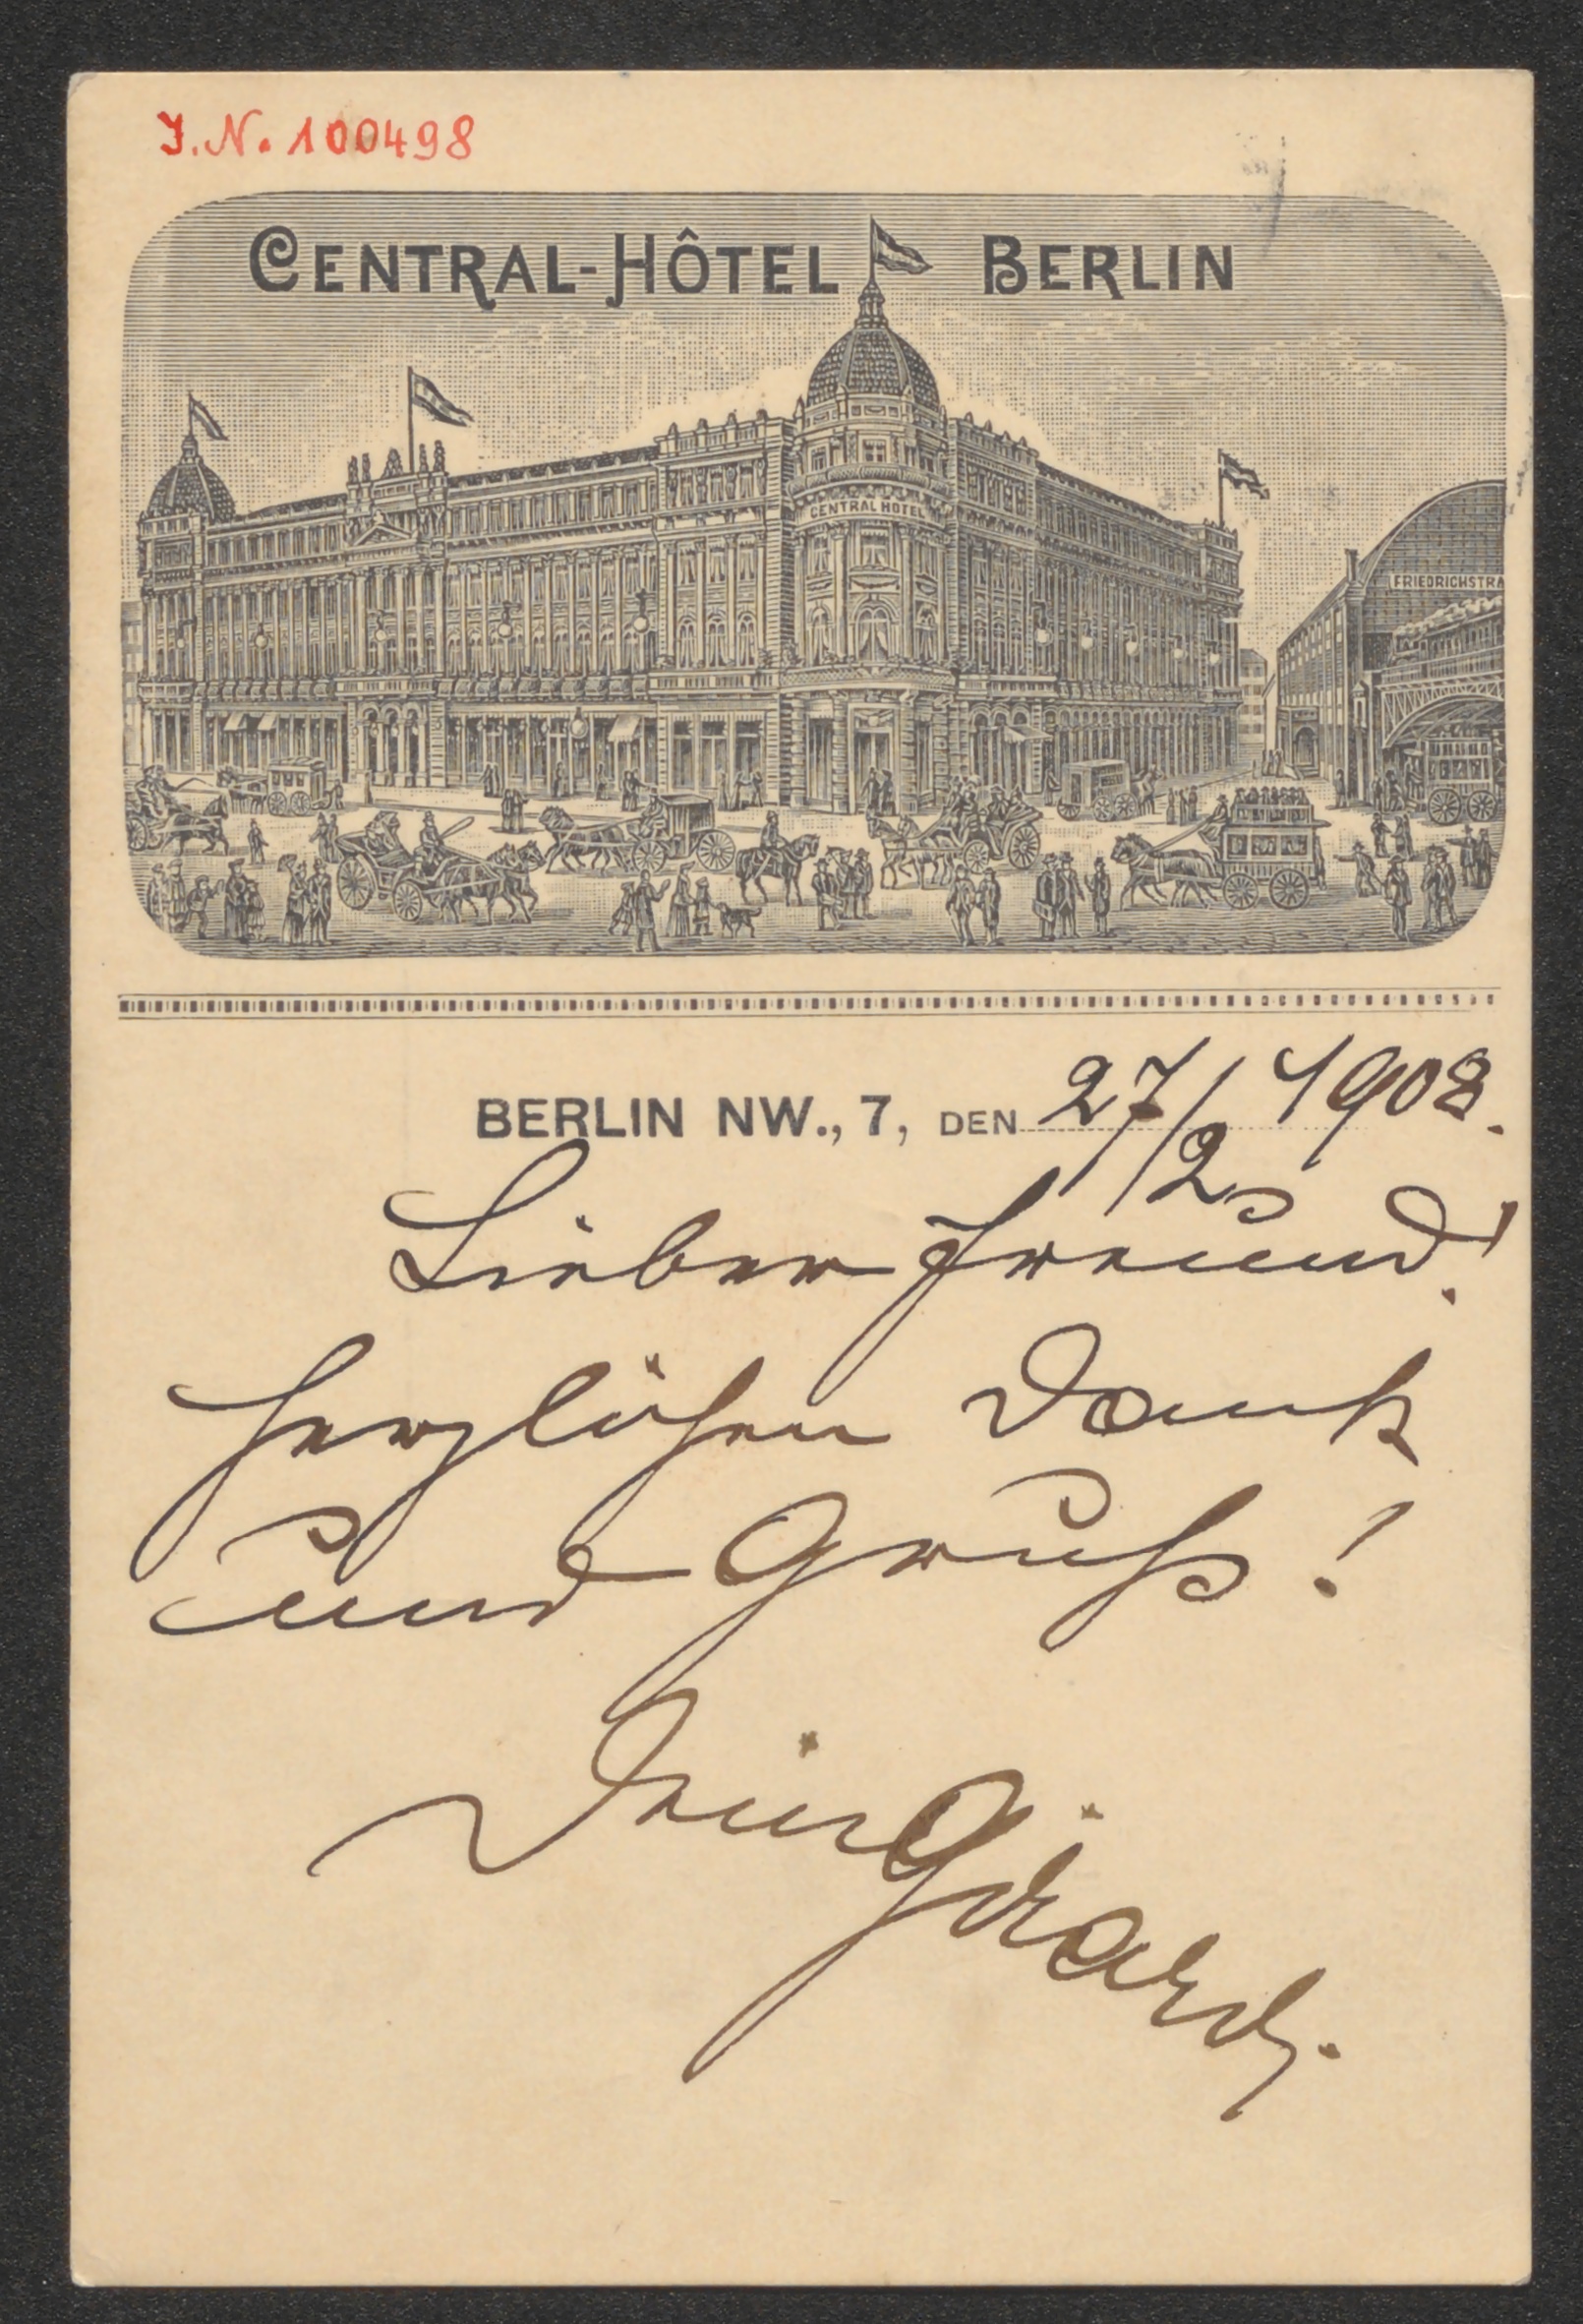 J.N. 100498
CENTRAL-HÔTEL BERLIN
CENTRAL HOTEL
FRIEDRICHSTRA
BERLIN NW., 7, DEN 27/2 1908.
Lieber Freund!
Herzlichen Dank
und Gruß!
Dein Girardi.